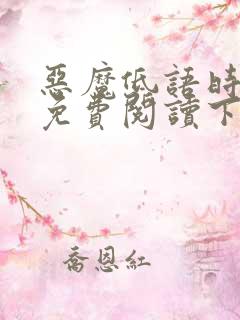 惡魔低語時
免費閱讀下
喬恩紅